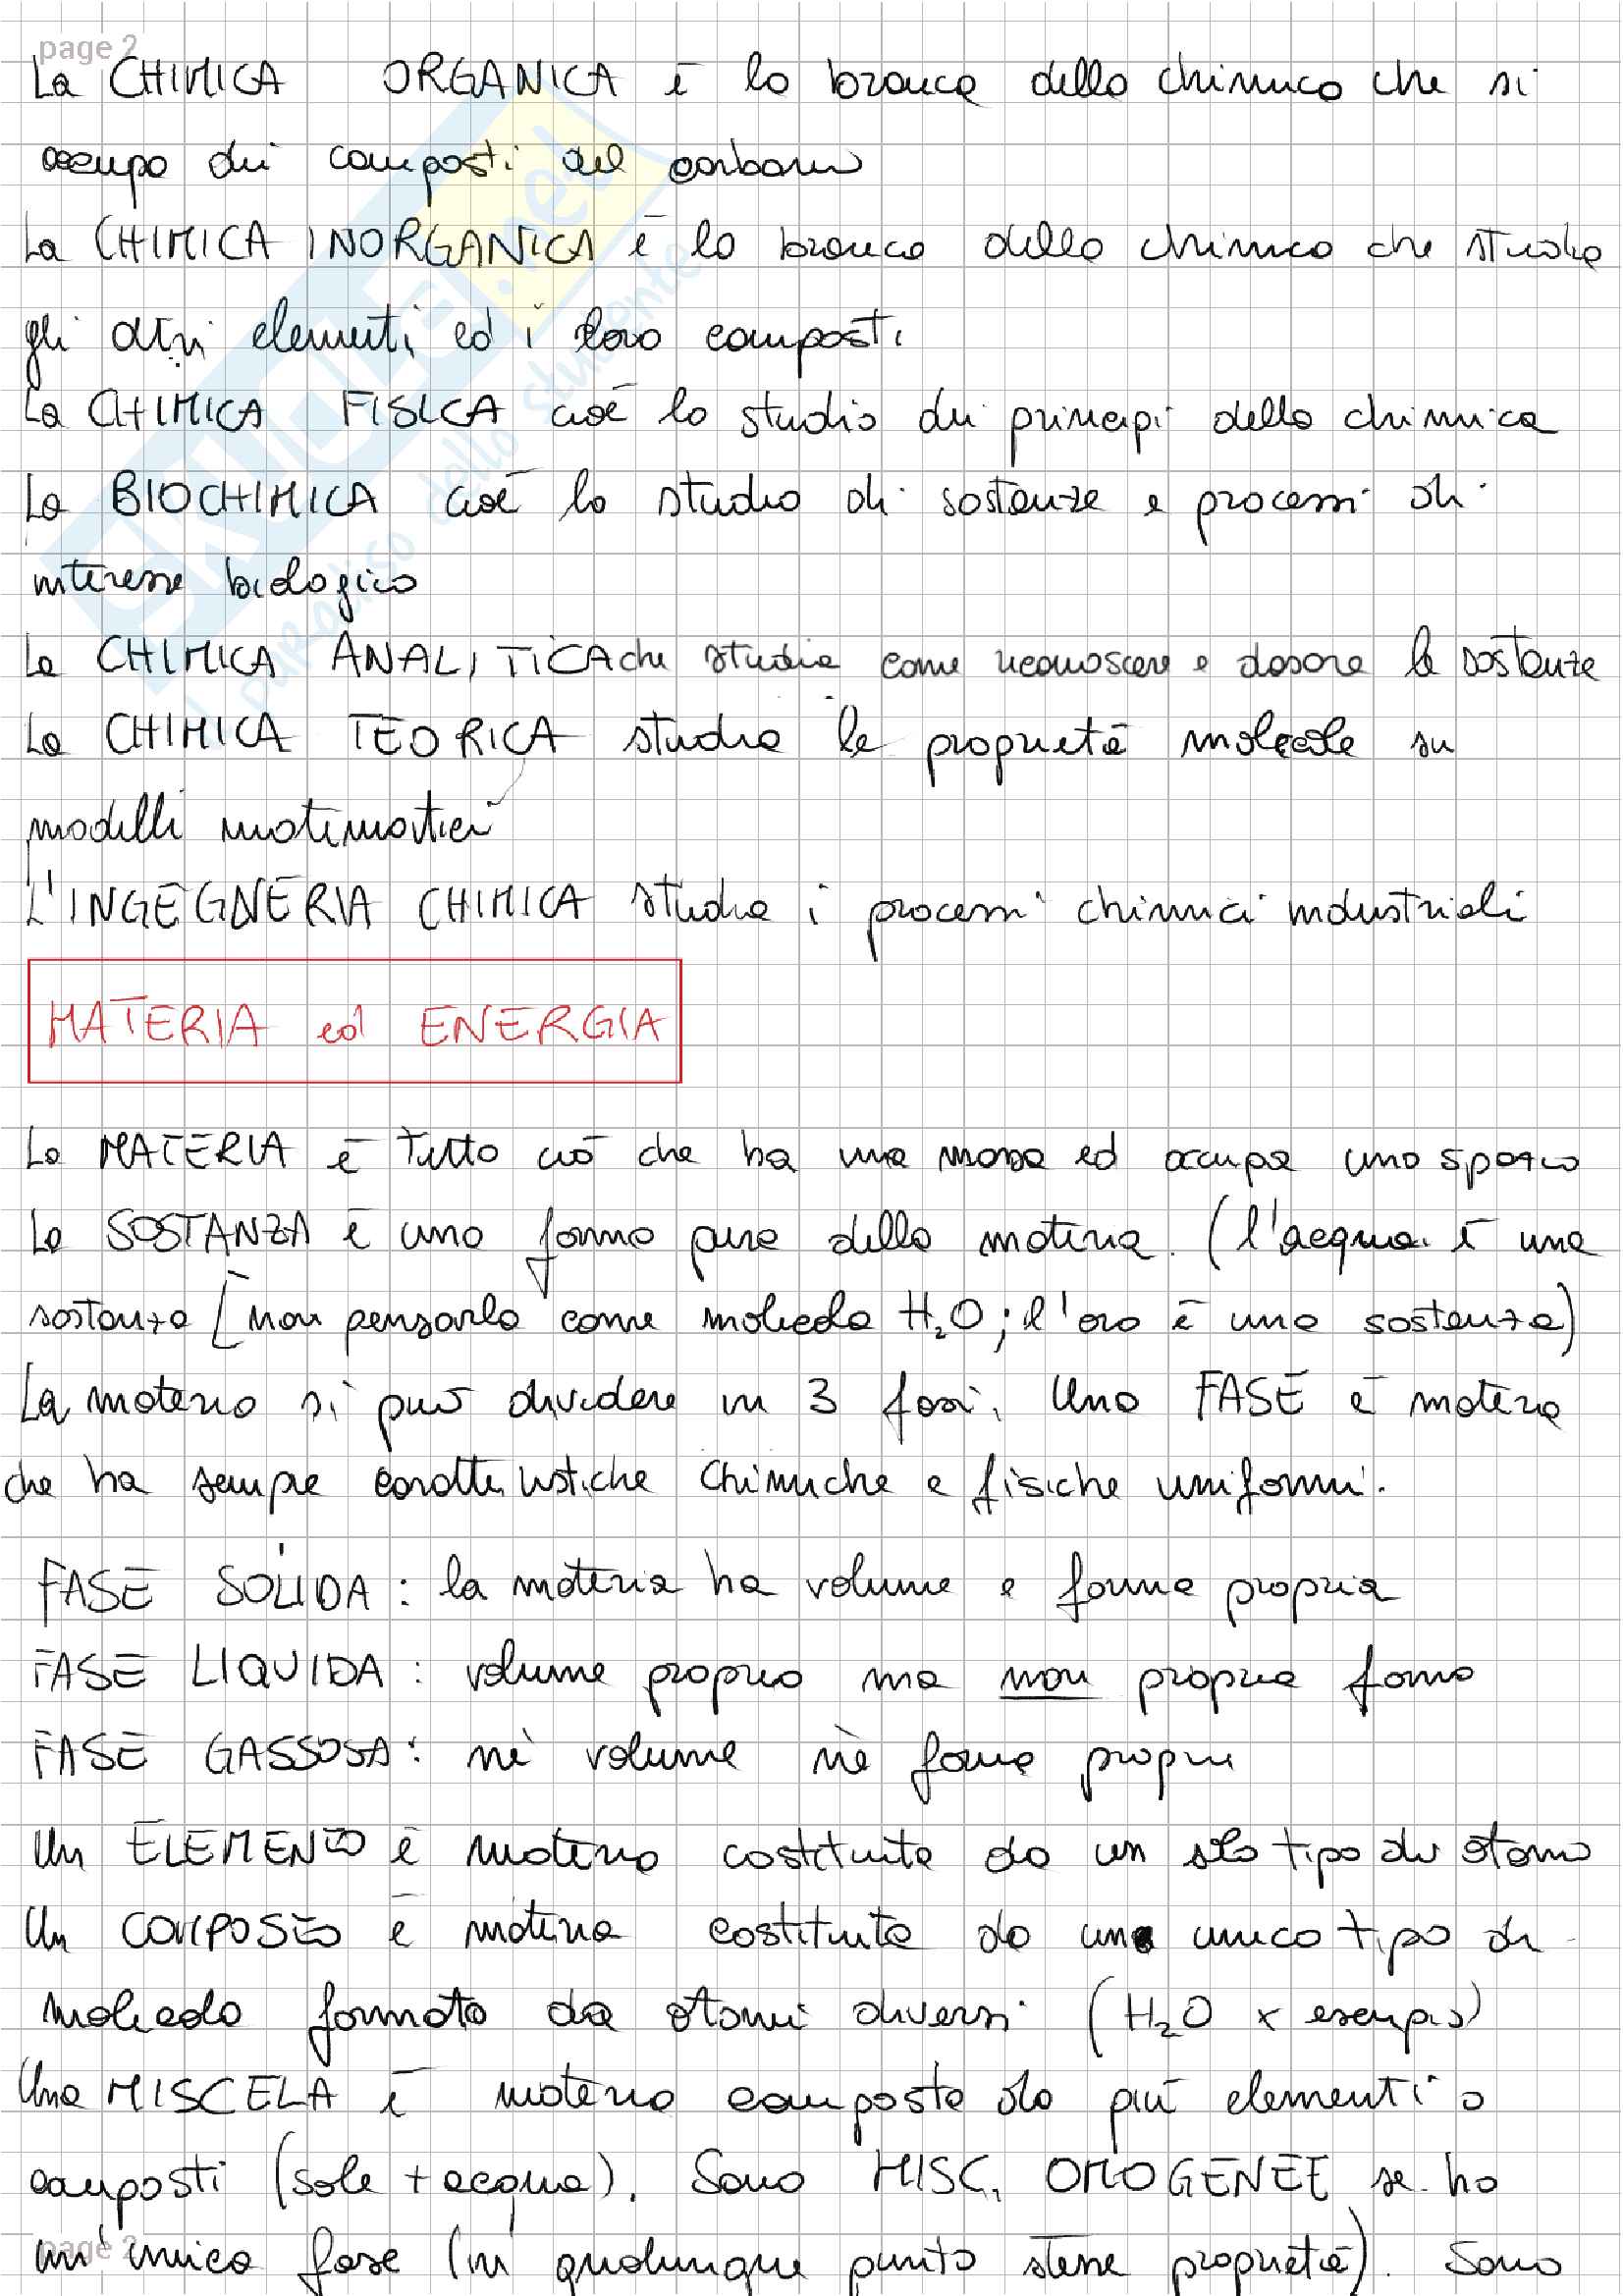 page 2
La CHIMICA ORGANICA è la branca della chimica che si
occupa dei composti del carbonio
La CHIMICA INORGANICA è la branca della chimica che studia
gli altri elementi ed i loro composti
La CHIMICA FISICA cioè lo studio dei principi della chimica
La BIOCHIMICA cioè lo studio di sostanze e processi di
interesse biologico
La CHIMICA ANALITICA che studia come riconoscere e dosare le sostanze
La CHIMICA TEORICA studia le proprietà molecole su
modelli matematici
L'INGEGNERIA CHIMICA studia i processi chimici industriali
MATERIA ed ENERGIA
La MATERIA è tutto ciò che ha una massa ed occupa uno spazio
La SOSTANZA è una forma pura della materia. (l'acqua è una
sostanza [non pensarla come molecola H₂O; l'oro è una sostanza)
La materia si può dividere in 3 fasi. Una FASE è materia
che ha sempre caratteristiche chimiche e fisiche uniformi.
FASE SOLIDA: la materia ha volume e forma propria
FASE LIQUIDA: volume proprio ma non propria forma
FASE GASSOSA: nè volume nè forma propri
Un ELEMENTO è materia costituita da un solo tipo di atomo
Un COMPOSTO è materia costituita da un unico tipo di
molecola formata da atomi diversi (H₂O x esempio)
Una MISCELA è materia composta da più elementi o
composti (sale + acqua). Sono MISC. OMOGENEE se ha
un'unica fase (in qualunque punto stesse proprietà). Sono
page 2
SKUOLA.net
il paradiso dello studente